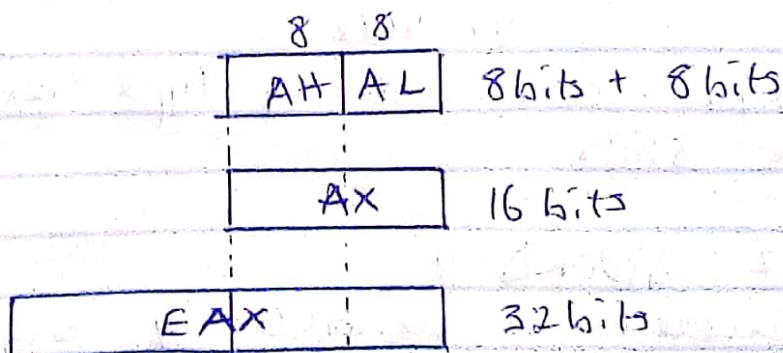 8 8
AH AL 8bits + 8bits
AX 16 bits
EAX 32bits